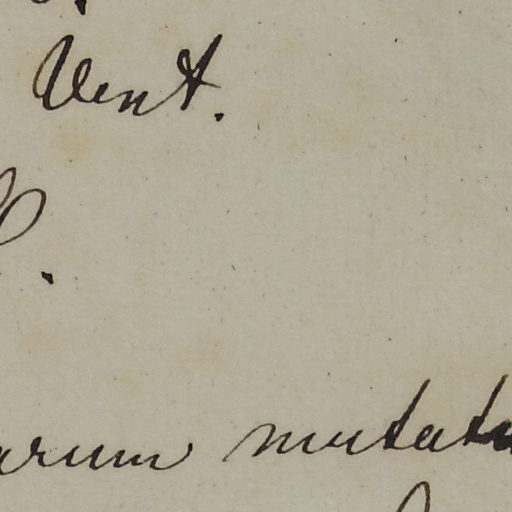 Vent.
arum mutatu